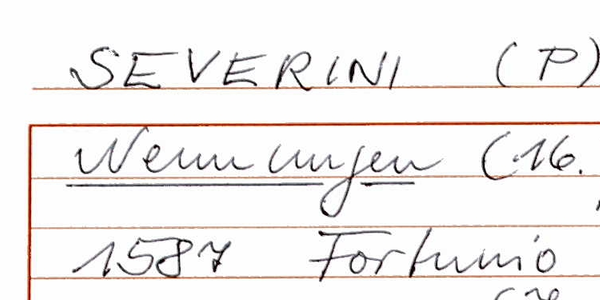 SEVERINI (P)
Nennungen (16.
1587 Fortunio